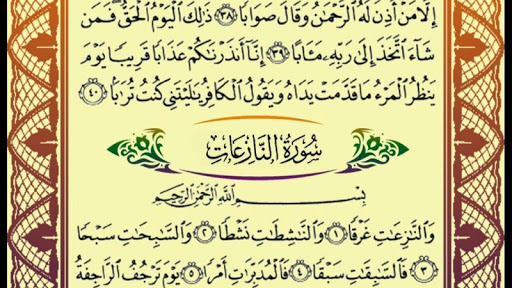 إِلَّا مَنْ أَذِنَ لَهُ الرَّحْمَٰنُ وَقَالَ صَوَابًا ٣٨ ذَٰلِكَ الْيَوْمُ الْحَقُّ فَمَن
شَاءَ اتَّخَذَ إِلَىٰ رَبِّهِ مَـَٔابًا ٣٩ إِنَّا أَنذَرْنَٰكُمْ عَذَابًا قَرِيبًا يَوْمَ
يَنظُرُ الْمَرْءُ مَا قَدَّمَتْ يَدَاهُ وَيَقُولُ الْكَافِرُ يَٰلَيْتَنِي كُنتُ تُرَٰبًا ٤٠
سُورَةُ النَّازِعَاتِ
بِسْمِ اللَّهِ الرَّحْمَٰنِ الرَّحِيمِ
وَالنَّٰزِعَٰتِ غَرْقًا ١ وَالنَّٰشِطَٰتِ نَشْطًا ٢ وَالسَّٰبِحَٰتِ سَبْحًا
٣ فَالسَّٰبِقَٰتِ سَبْقًا ٤ فَالْمُدَبِّرَٰتِ أَمْرًا ٥ يَوْمَ تَرْجُفُ الرَّاجِفَةُ